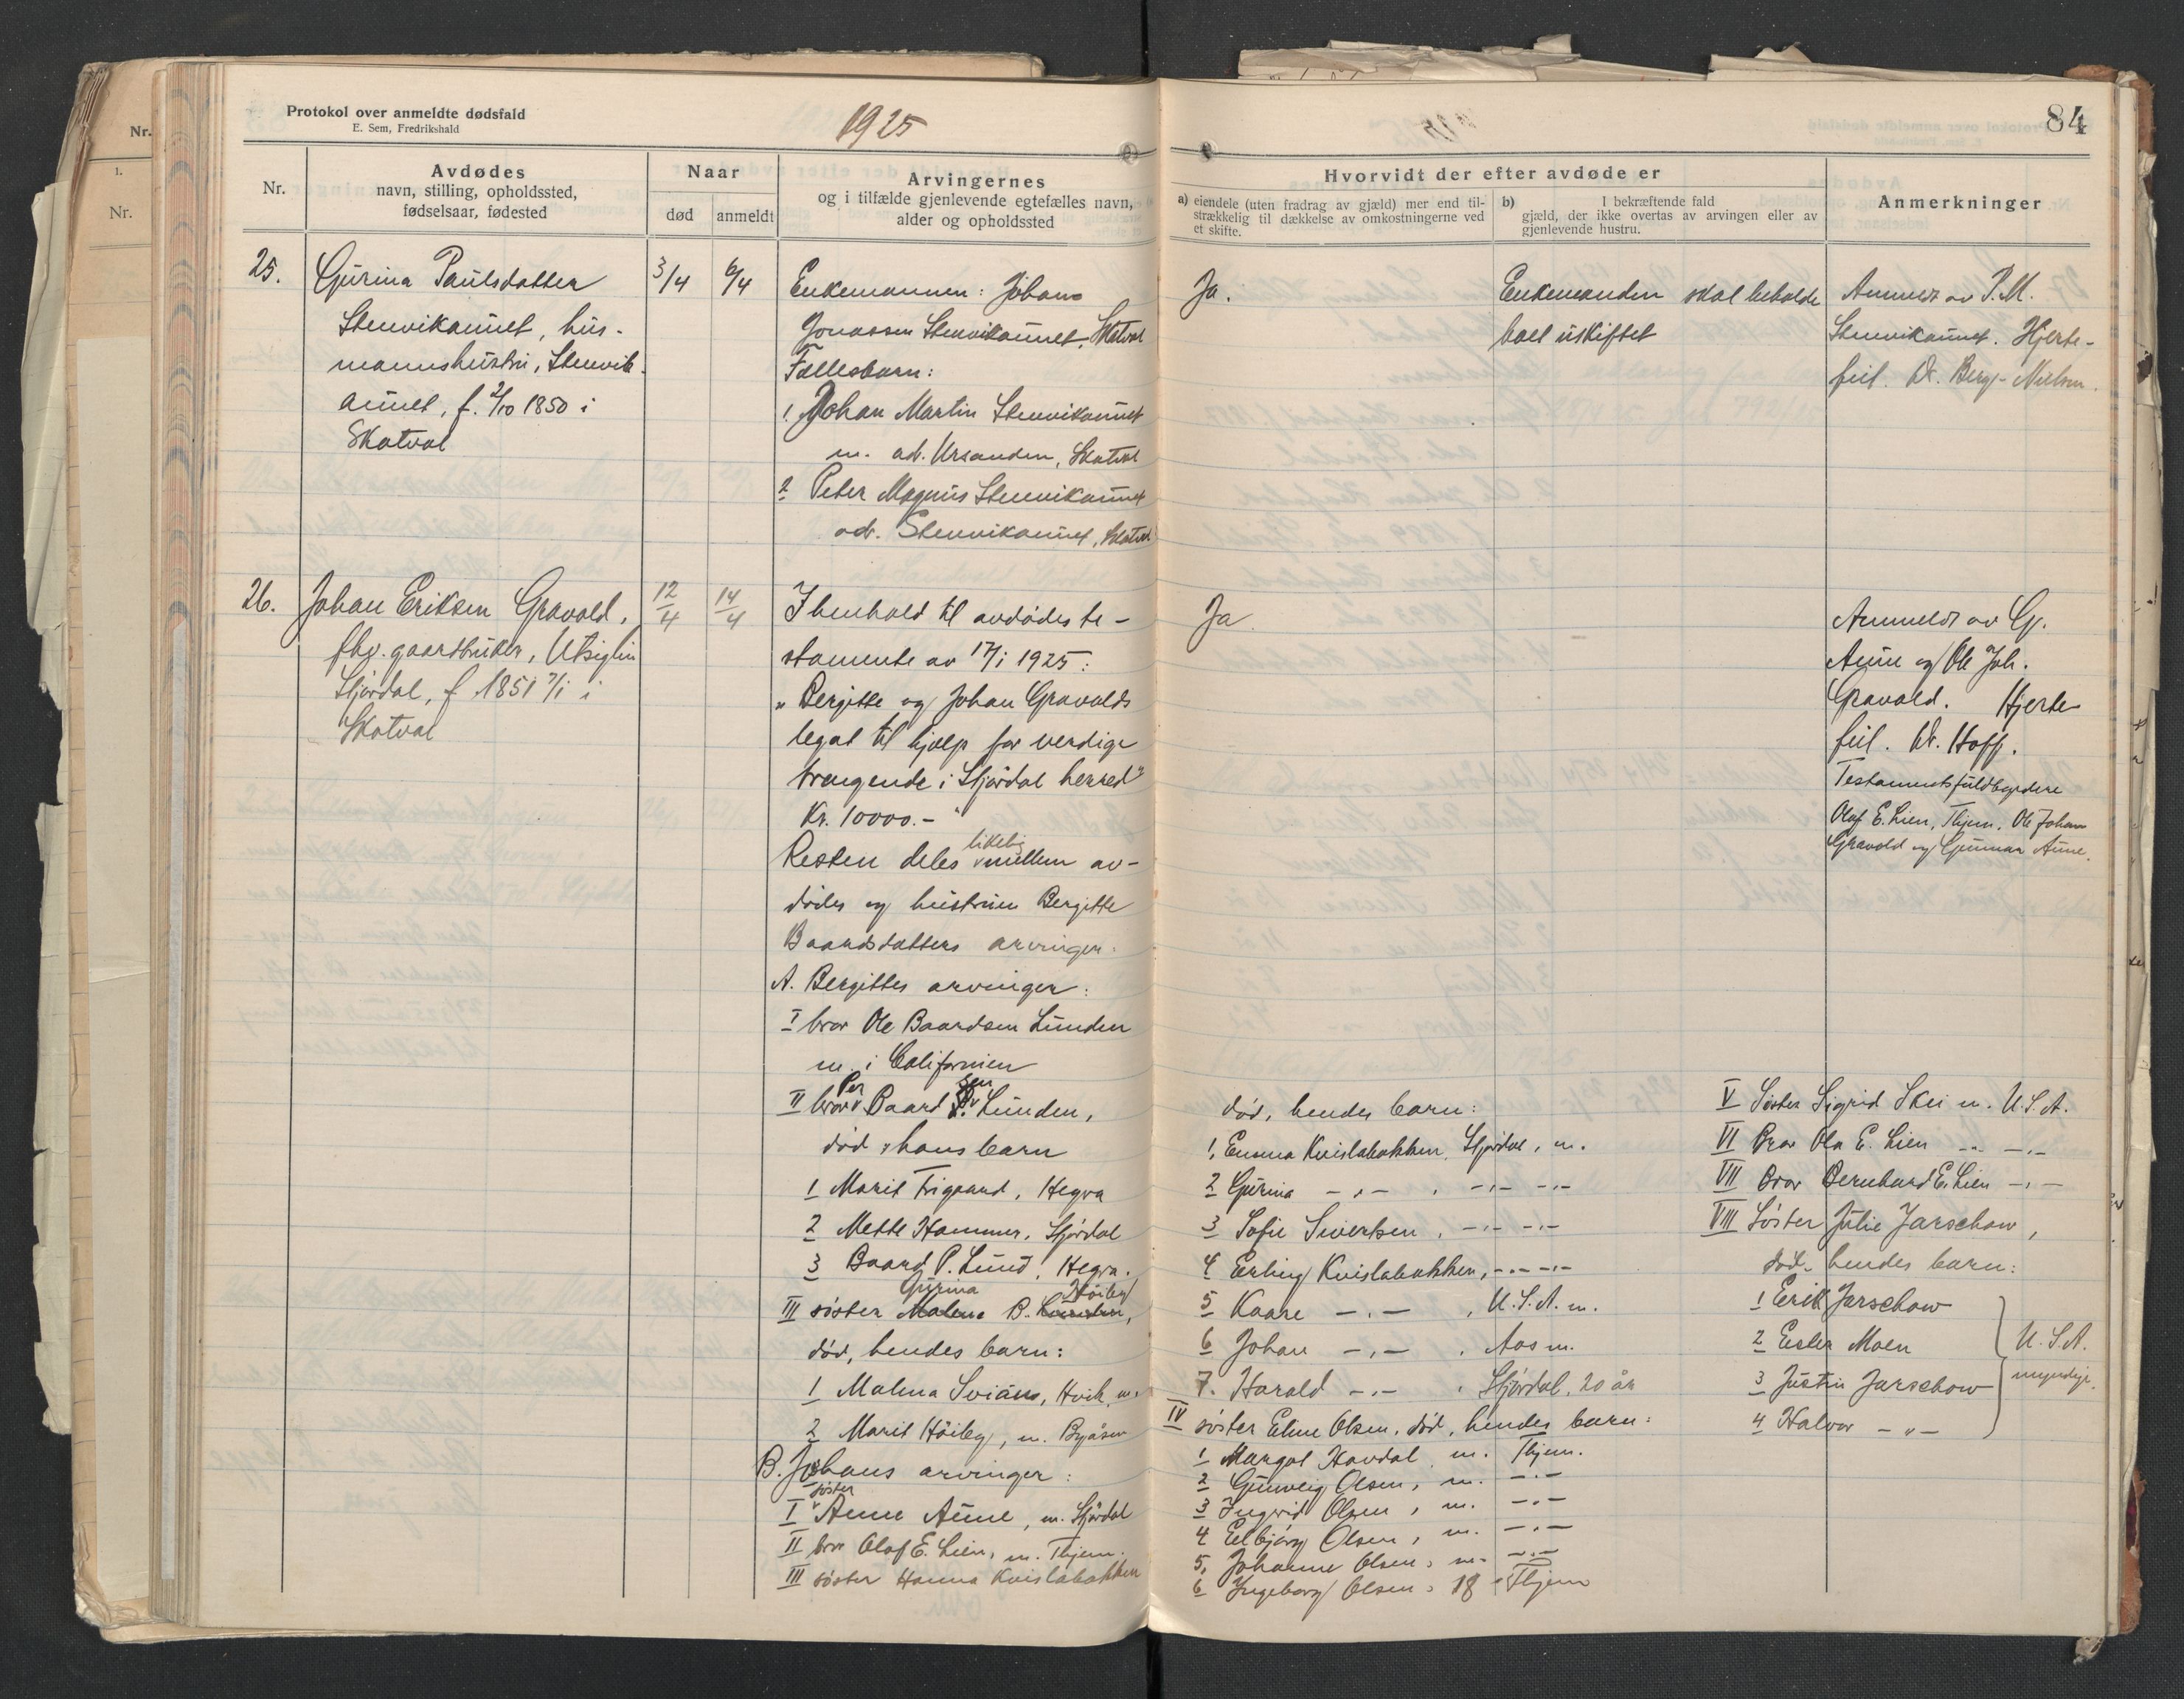 Protokol over anmeldte dødsfald
E. Sem, Fredrikshald
1925
Nr.
Avdødes
navn, stilling, opholdssted,
fødselsaar, fødested
Naar
død
anmeldt
Arvingernes
og i tilfælde gjenlevende egtefælles navn,
alder og opholdssted
25.
Gurina Paulsdatter
Stenvikaunet, hus-
mannshustru, Stenvik-
aunet, f. 2/10 1850 i
Skatval
3/4
6/4
Enkemannen: Johans
Jonassen Stenvikaunet, Skatval
Fællesbarn:
1. Johan Martin Stenvikaunet
m. adr. Ursanden, Skatval
2 Peter Magnus Stenvikaunet
adr. Stenvikaunet, Skatval
26.
Johan Eriksen Gravald,
fhv. gaardbruker, Utsiglin
Stjørdal, f 1851 7/1 i
Skatval
12/4
14/4
I henhold til avdødes te-
stamente av 17/1 1925:
„Bergitte og Johan Gravalds
legat til hjælp for verdige
trængende i Stjørdal herred"
Kr. 10000.-
Resten deles likelig mellem av-
dødes og hustruen Bergitte
Baardsdatters arvinger:
A. Bergittes arvinger:
I bror Ole Baardsen Lunden
m. i Californien
II bror Per Baardsen Lunden,
død, hans barn
1 Marit Trigaard, Hegra
2 Mette Hammer, Stjørdal
3 Baard P. Lund, Hegra.
III søster Gurina B. Høiby,
død, hendes barn:
1 Malena Sviaas, Hvik, m.
2 Marit Høiby, m. Byåsen
B. Johans arvinger:
I søster Anne Aune, m. Stjørdal
II bror Olaf E. Lien, m. Thjem.
III søster Hanna Kvislabakken
84
Hvorvidt der efter avdøde er
a) eiendele (uten fradrag av gjæld) mer end til-
strækkelig til dækkelse av omkostningerne ved
et skifte.
b) I bekræftende fald
gjæld, der ikke overtas av arvingen eller av
gjenlevende hustru.
Anmerkninger
Ja.
Enkemanden skal beholde
boet uskiftet
Anmeldt av P.M.
Stenvikaunet. Hjerte-
feil. Dr. Berg-Nielsen.
Ja
Anmeldt av G.
Aune og Ole Joh.
Gravald. Hjerte
feil. Dr. Hoff.
Testamentsfuldbyrdere
Olaf E. Lien, Thjem, Ole Johan
Gravald og Gunnar Aune.
død, hendes barn:
1. Emma Kvislabakken, Stjørdal, m.
2 Gurina -"- , -"- -"-
3 Sofie Sivertsen, -"- -"-
4 Erling Kvislabakken, -"- -"-
5 Kaare -"- , U.S.A. m.
6 Johan -"- , Aas m.
7. Harald -"- , Stjørdal, 20 år
IV søster Eline Olsen, død, hendes barn:
1 Margot Havdal, m. Thjem.
2 Gunveig Olsen, m. -"-
3 Ingrid Olsen, m. -"-
4 Eelbjørg Olsen, m. -"-
5. Johanne Olsen, m. -"-
6 Ingeborg Olsen, 18 Thjem
V Søster Sigrid Skei m. U.S.A.
VI Bror Ola E. Lien -"- -"-
VII Bror Bernhard E. Lien -"-
VIII Søster Julie Jarschow,
død, hendes barn:
1 Erik Jarschow
2 Ester Moen
3 Justin Jarschow
4 Halvor -"-
U.S.A.
myndige.